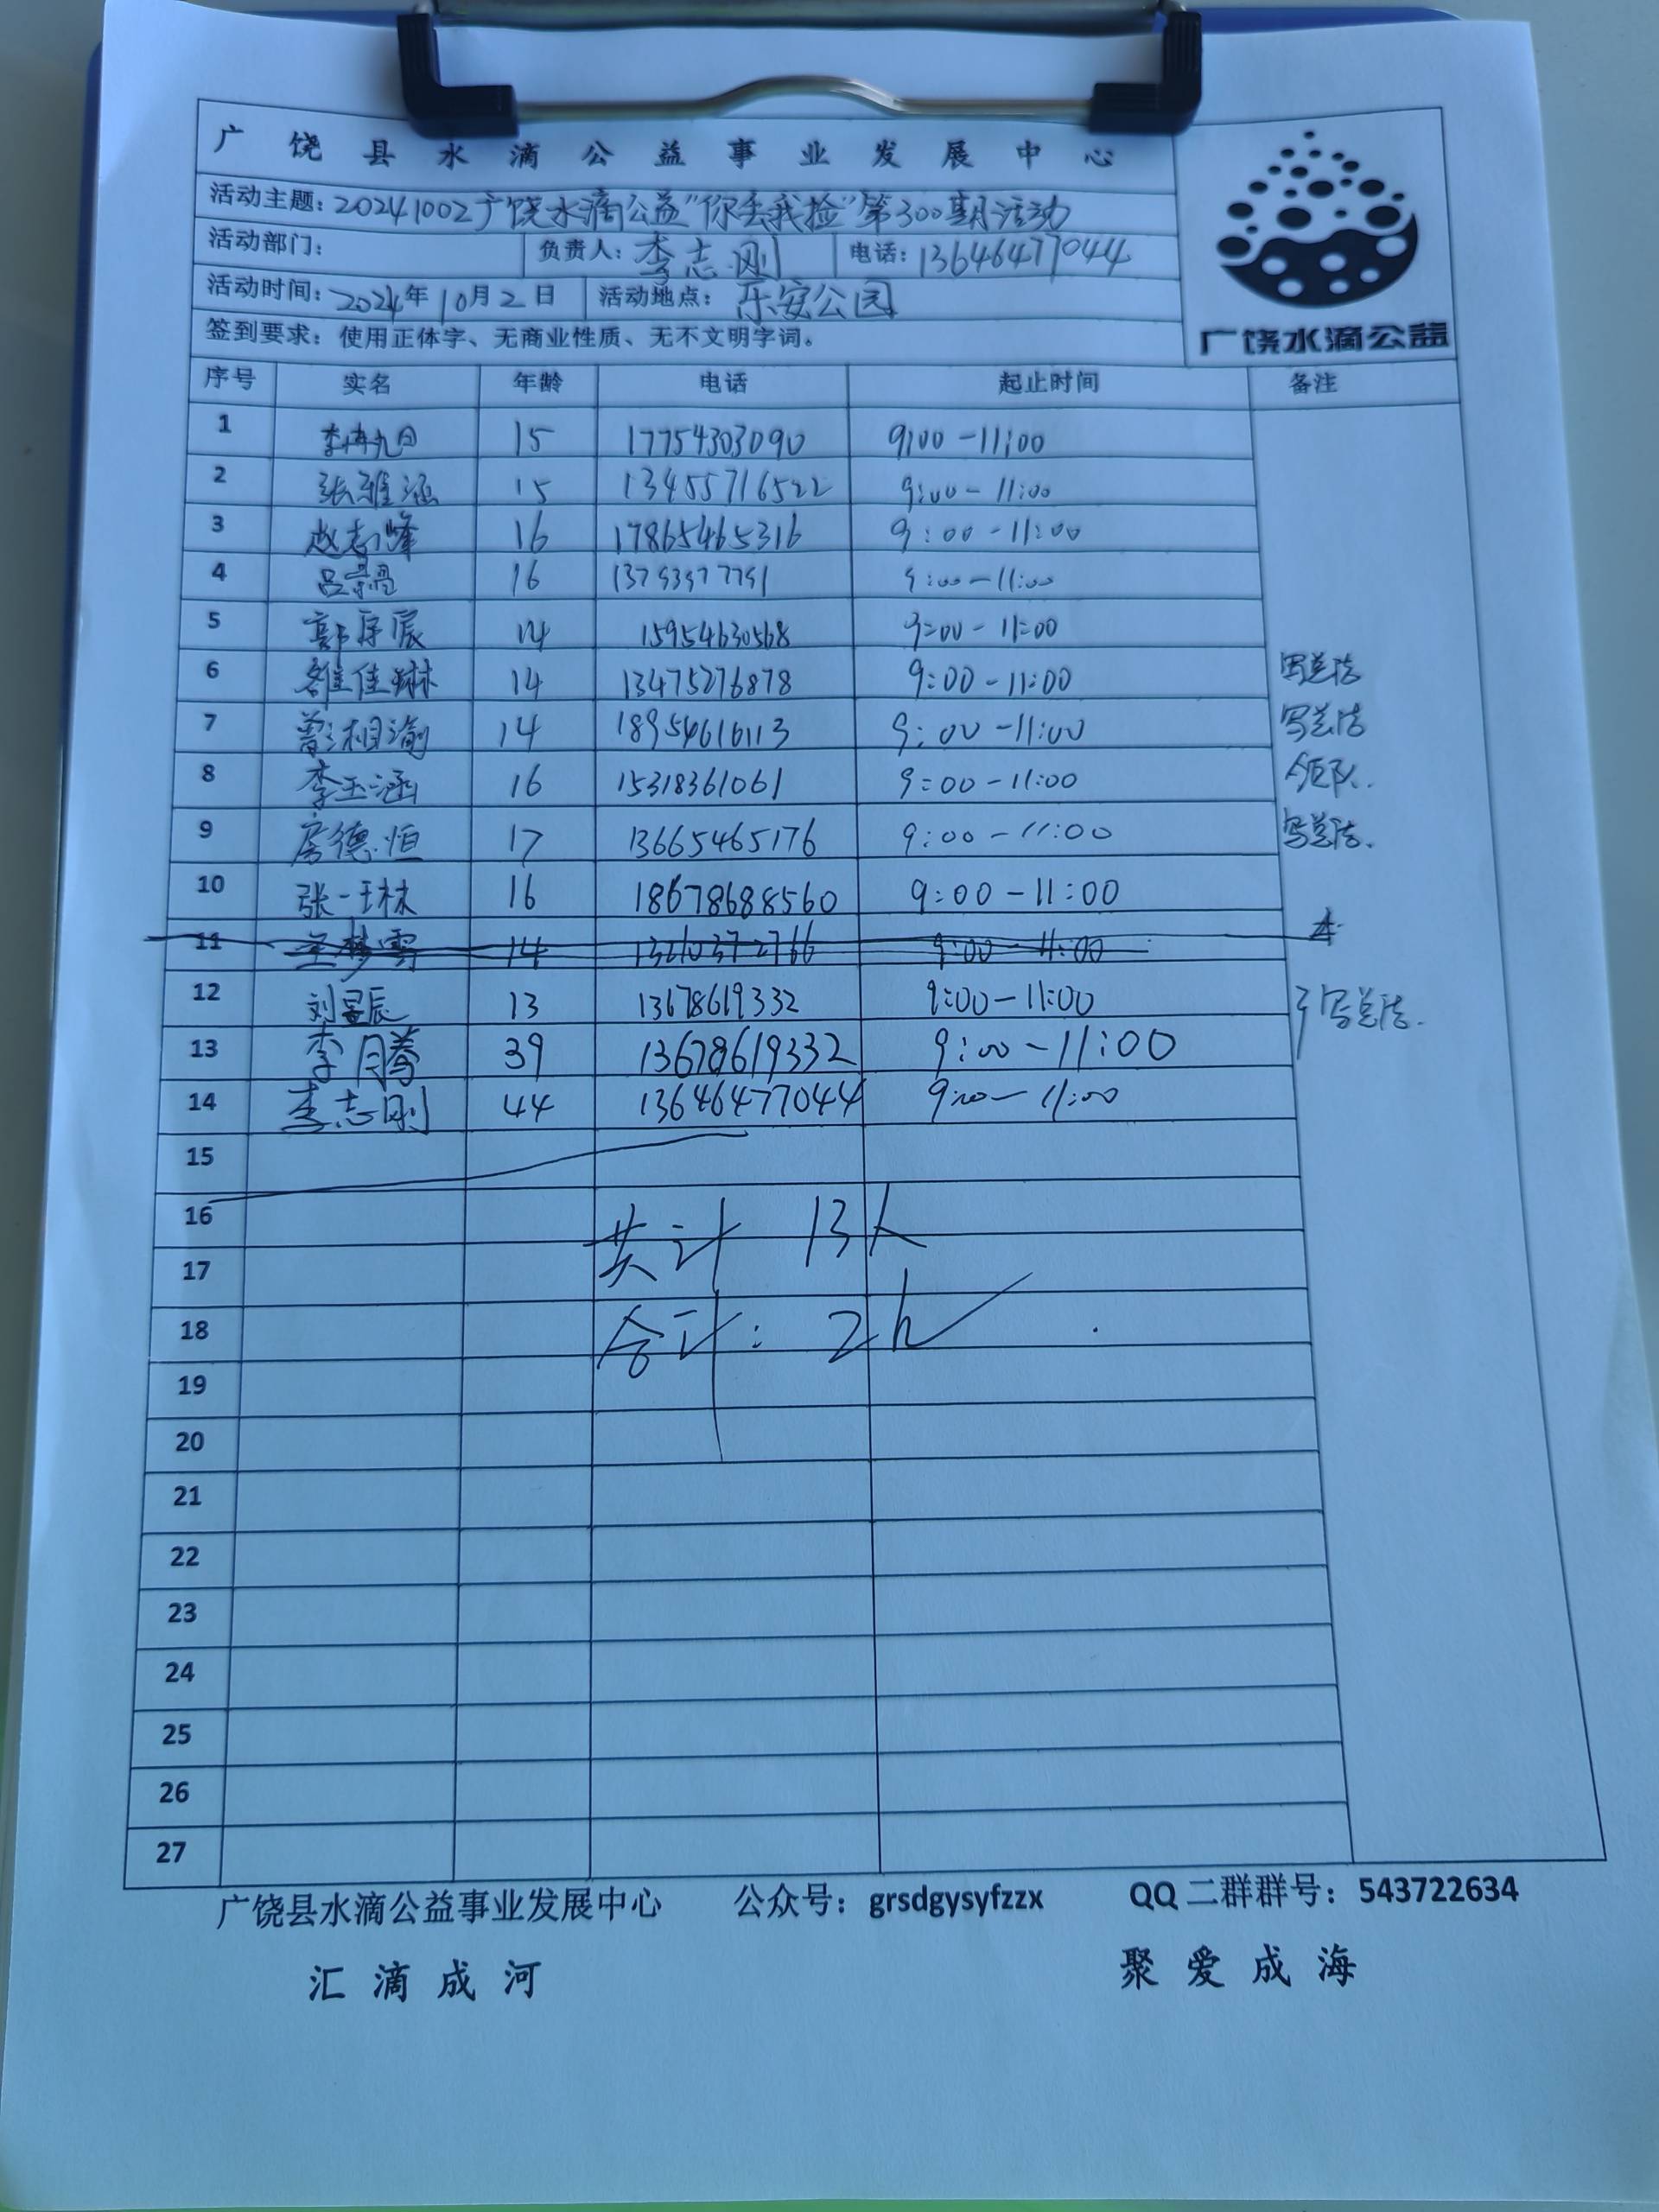 广饶县水滴公益事业发展中心
活动主题：20241002广饶水滴公益"你丢我捡"第300期活动
活动部门： 负责人：李志刚 电话：13646477044
活动时间：2024年10月2日 活动地点：乐安公园
签到要求：使用正体字、无商业性质、无不文明字词。
广饶水滴公益
序号 实名 年龄 电话 起止时间 备注
1 15 17754303090 9:00-11:00
2 张雅涵 15 13455716522 9:00-11:00
3 赵志峰 16 17865465316 9:00-11:00
4 吕景 16 9:00-11:00
5 郭辰 14 15954630568 9:00-11:00
6 佳琳 14 13475276878 9:00-11:00 写总结
7 14 18954616113 9:00-11:00 写总结
8 李玉涵 16 15318361061 9:00-11:00 领队.
9 房德恒 17 13665465176 9:00-11:00 写总结.
10 张一琳 16 18678688560 9:00-11:00
11 梦雪 14 9:00-11:00
12 刘昱辰 13 13678619332 9:00-11:00 写总结.
13 李月 39 13678619332 9:00-11:00
14 李志刚 44 13646477044 9:00-11:00
15
16
共计 13人
17
18
合计：2h
19
20
21
22
23
24
25
26
27
广饶县水滴公益事业发展中心 公众号：grsdgysyfzzx QQ二群群号：543722634
汇滴成河 聚爱成海